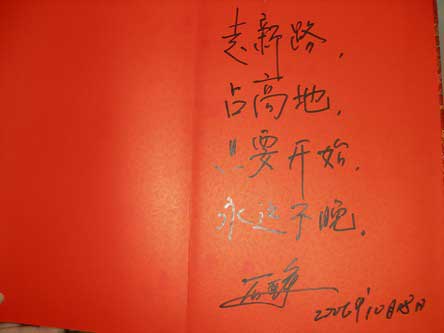 走新路，
占高地，
只要开始，
永远不晚，
2006年10月18日